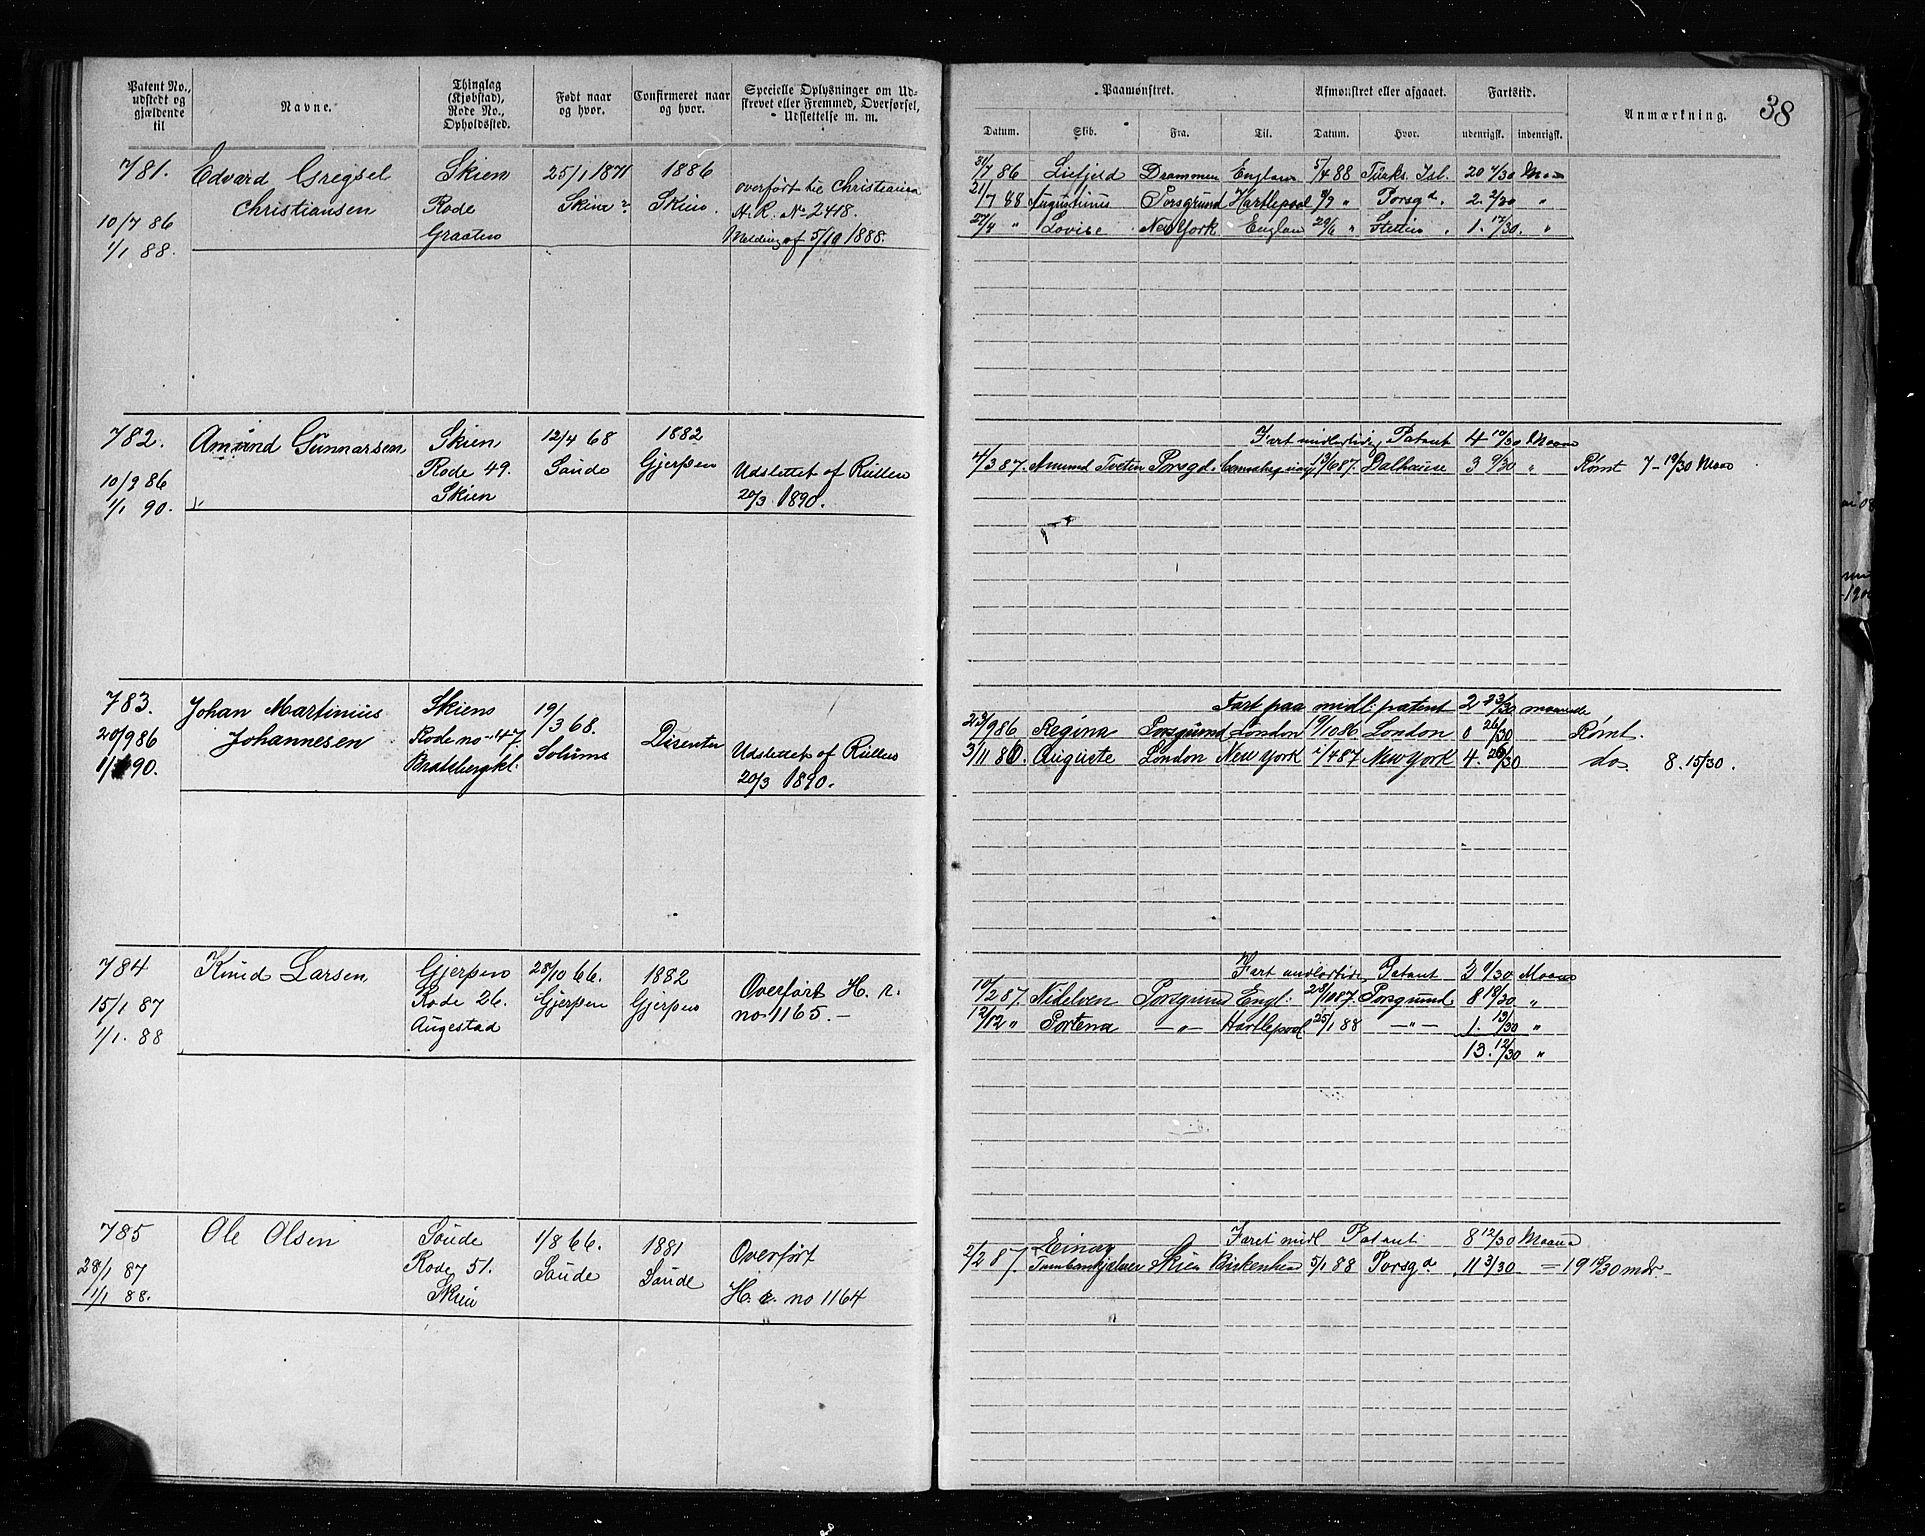 Patent No., udstedt og gjældende til
Navne.
Thinglag (Kjøbstad), Rode No., Opholdssted.
Født naar og hvor.
Confirmeret naar og hvor.
Specielle Oplysninger om Udskrevet eller Fremmed, Overførsel, Udslettelse m. m.
Paamønstret.
Afmønstret eller afgaaet.
Fartstid.
Anmærkning.
38
Datum. Skib. Fra. Til. Datum. Hvor. udenrigsk. indenrigsk.
781.
10/7 86
1/1 88.
Edvard Gregsel
Christiansen
Skien
Rode
Graaten
25/1 1871
Skien
1886
Skien.
overført til Christiania
H. R. No 2418.
Melding af 5/10 1888.
31/7 86 Liefjeld Drammen England 5/4 88 Turks Isl. 20 4/30 Maan
21/7 88 Augustinus Porsgrund Hartlepool Porsgd. 2. 2/30 "
27/4 " Lovise New York Englan 20/6 " Stettin 1. 17/30. "
782.
10/9 86
1/1 90.
Amund Gunnarsen
Skien
Rode 49.
Skien
12/4 68
Saude
1882
Gjerpen
Udslettet af Rullen
20/3 1890.
Fart midlertidig Patent 4 10/30 Maane
4/3 87. Amund Tveten Porsgd. 13/6 87. Dalhousie 3 9/30 " Rømt 7 - 19/30 Maan
783.
20/9 86
1/1 90.
Johan Martinius
Johannesen
Skiens
Rode no 47
Bratsbergkl:
19/3 68.
Solums
Disenter
Udslettet af Rullen
20/3 1890.
Fart paa midl: patent 2 23/30 maanede
23/9 86 Regina Porsgrund London 19/10 86 London 0 26/30 Rømt.
3/11 86. Auguste London New York 2/4 87 New York 4. 26/30 do. 8. 15/30.
784
15/1 87
1/1. 88
Knud Larsen
Gjerpen
Rode 26.
Augestad
28/10 66.
Gjerpen
1882
Gjerpen
Overført H. r.
no 1165. —
Fart midlertidig Patent 3 9/30 Maane
10/2 87. Nidelven Porsgrund Engl: 28/10 87. Porsgrund 8 19/30 "
12/12 " Portena — " — Hartlepool 25/1 88 — " — 1. 13/30 "
13. 12/30 "
785
28/1 87
1/1 88.
Ole Olsen
Saude
Rode 51.
Skien
1/8 66.
Saude
1881
Saude
Overført
H. r. no 1164
Faret midl Patent 8 12/30 Maane
Einar
2/2 87. Tambarskjelver Skien Birkenhead 5/1 88 Porsgd. 11 3/30 = 19 15/30 mdr.